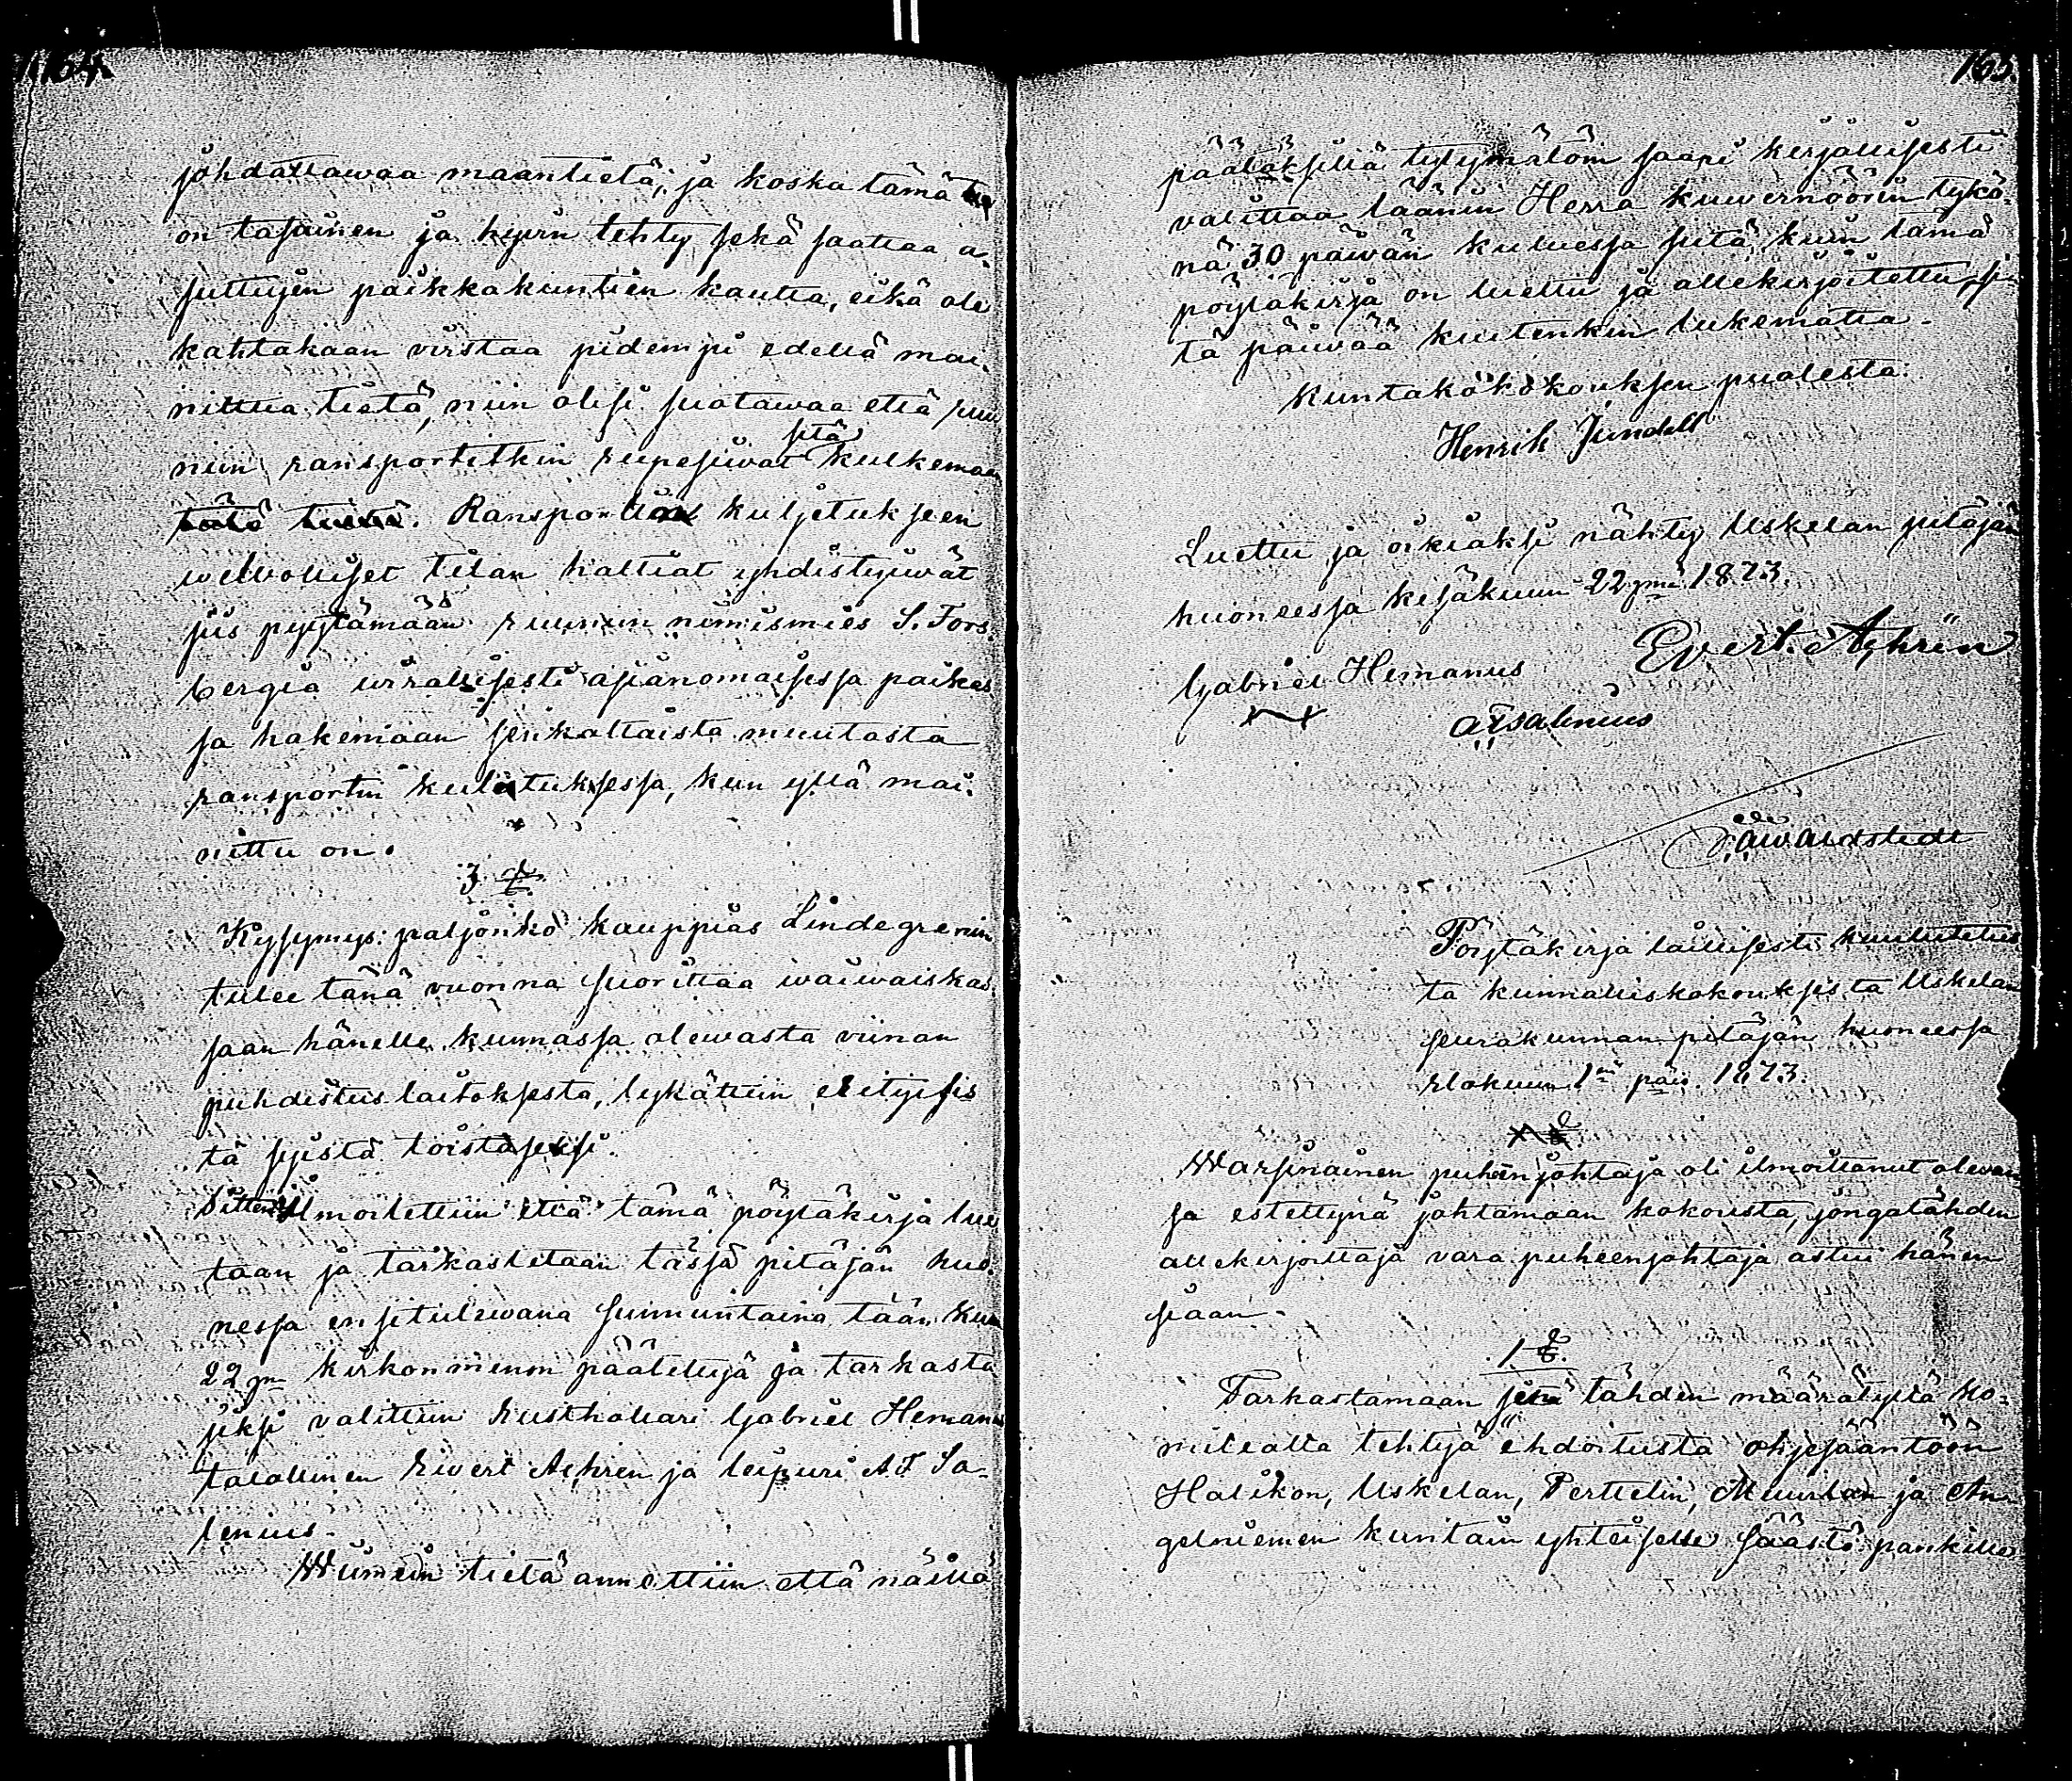 164.
johdattawaa maantietä; ja koska tämä tie
on tasainen ja hywin tehty sekä saattaa a-
suttujen paikkakuntien kautta, eikä ole
kahtakaan virstaa pidempi edellä mai-
nittua tietä, niin olisi suotawaa että ruu
niin ransportitkin rupesiwat sitä kulkemaan
tätä tietä. Ransportin kuljetukseen
welwolliset tilan haltiat yhdistyiwät
siis pyytämään ruunun nimismies S. Fors-
bergiä wirallisesti asianomaisessa paikas
sa hakemaan senkaltaista muutosta
ransportin kuljetuksessa, kun yllä mai-
nittu on.
3 §.
Kysymys: paljonko kauppias Lindegrenin
tulee tänä vuonna suorittaa waiwaiskas
saan hänelle kunnassa olewasta viinan
puhdistus laitoksesta, lykättiin erityisis
tä syistä toistaseksi.
Sitten ilmoitettiin että tämä pöytäkirja lue
taan ja tarkastetaan tässä pitäjän huo-
nessa ensitulewana sunnuntaina tään kuu
22 pn kirkonmenon päätettyä ja tarkasta
jiksi valittiin rusthollari Gabriel Hemanus
talollinen Evert Achren ja leipuri A F Sa-
lenius.
Wiimein tietä annettiin että näillä
165.
päätöksillä tytymätöin saapi kirjallisesti
valittaa läänin Herra kuwernöörin tykö-
nä 30 päiwän kuluessa siitä kuin tämä
pöytäkirja on luettu ja allekirjoitettu, si
tä päiwää kuitenkin lukematta.
Kuntakokokouksen puolesta:
Henrik Jundell
Luettu ja oikiaksi nähty Uskelan pitäjän
huoneessa kesäkuun 22 pnä 1873.
Evert Achrén
Gabriel Hemanus
AFSalenius
AWAhlstedt
Pöytäkirja laillisesti kuulutetus
ta kunnalliskokouksesta Uskelan
seurakunnan pitäjän huoneessa
elokuun 1nä päiv. 1873.
§
Warsinainen puheenjohtaja oli ilmoittanut olevan
sa estettynä johtamaan kokousta, jongatähden
allekirjoittaja vara puheenjohtaja astui hänen
siaan.
1 §.
Tarkastamaan sitä tähden määrätyltä ko-
mitealta tehtyä ehdoitusta ohjesääntöön
Halikon, Uskelan, Perttelin, Muurlan ja An-
gelniemen kuntain yhteiselle säästö pankille